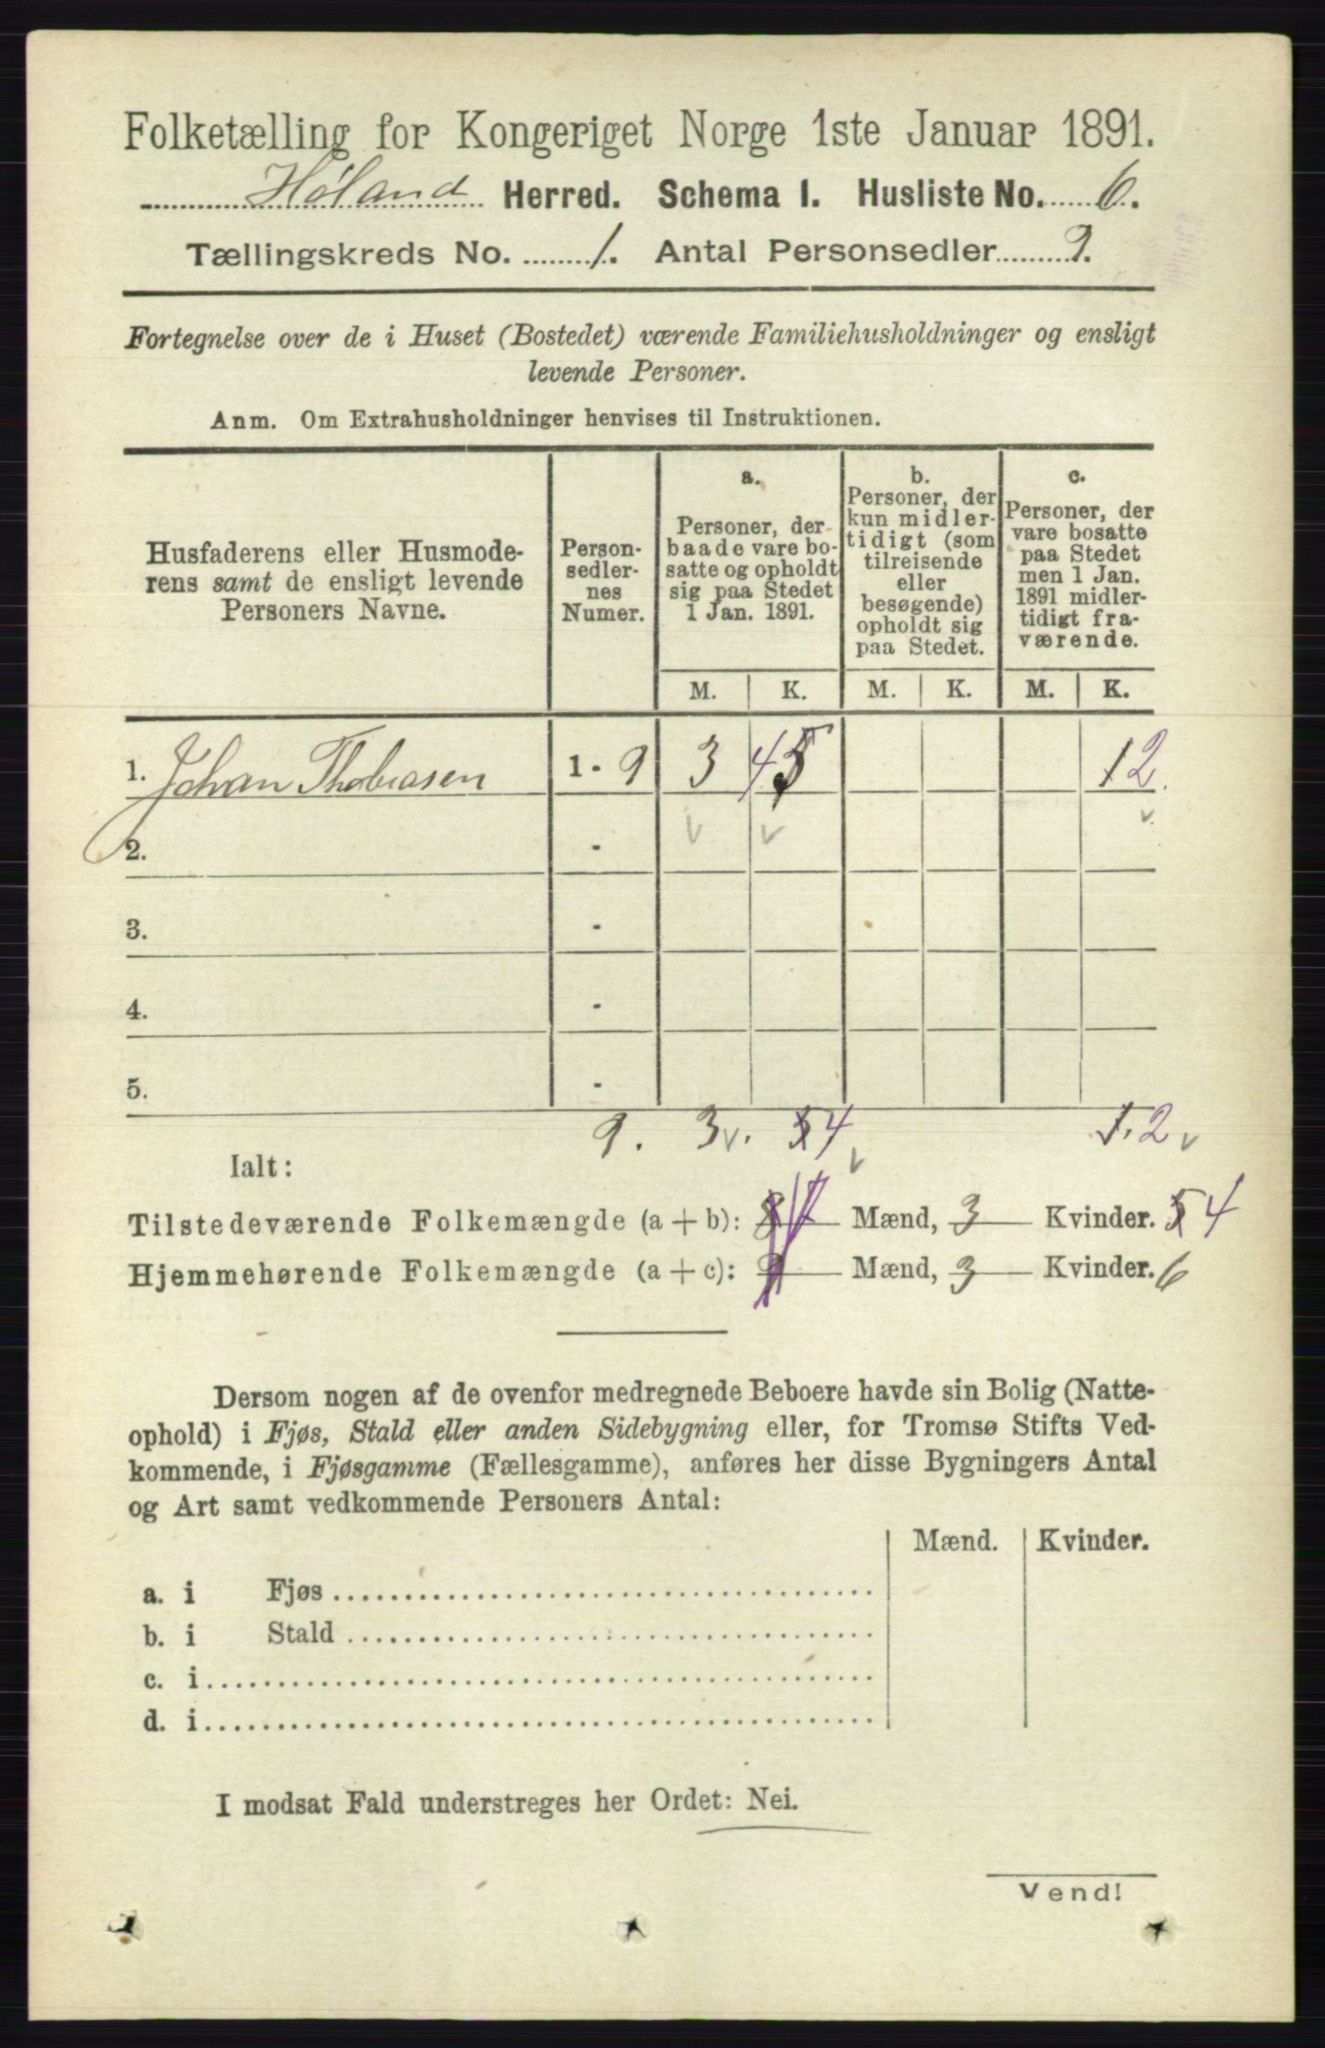 Folketælling for Kongeriget Norge 1ste Januar 1891.
Høland Herred. Schema I. Husliste No. 6.
Tællingskreds No. 1. Antal Personsedler 9.
Fortegnelse over de i Huset (Bostedet) værende Familiehusholdninger og ensligt
levende Personer.
Anm. Om Extrahusholdninger henvises til Instruktionen.
Husfaderens eller Husmode-
rens samt de ensligt levende
Personers Navne.
Person-
sedler-
nes
Numer.
a.
Personer, der
baade vare bo-
satte og opholdt
sig paa Stedet
1 Jan. 1891.
b.
Personer, der
kun midler-
tidigt (som
tilreisende
eller
besøgende)
opholdt sig
paa Stedet.
c.
Personer, der
vare bosatte
paa Stedet
men 1 Jan.
1891 midler-
tidigt fra-
værende.
M. K. M. K. M. K.
1. Johan Thobiasen 1 - 9 3 4 5 1 2.
2. -
3. -
4. -
5. -
9. 3 v. 5 4 v 1. 2 v
Ialt:
Tilstedeværende Folkemængde (a + b): 8 7 Mænd, 3 Kvinder. 5 4
Hjemmehørende Folkemængde (a + c): 9 Mænd, 3 Kvinder. 6
Dersom nogen af de ovenfor medregnede Beboere havde sin Bolig (Natte-
ophold) i Fjøs, Stald eller anden Sidebygning eller, for Tromsø Stifts Ved-
kommende, i Fjøsgamme (Fællesgamme), anføres her disse Bygningers Antal
og Art samt vedkommende Personers Antal:
Mænd. Kvinder.
a. i Fjøs
b. i Stald
c. i
d. i
I modsat Fald understreges her Ordet: Nei.
Vend!